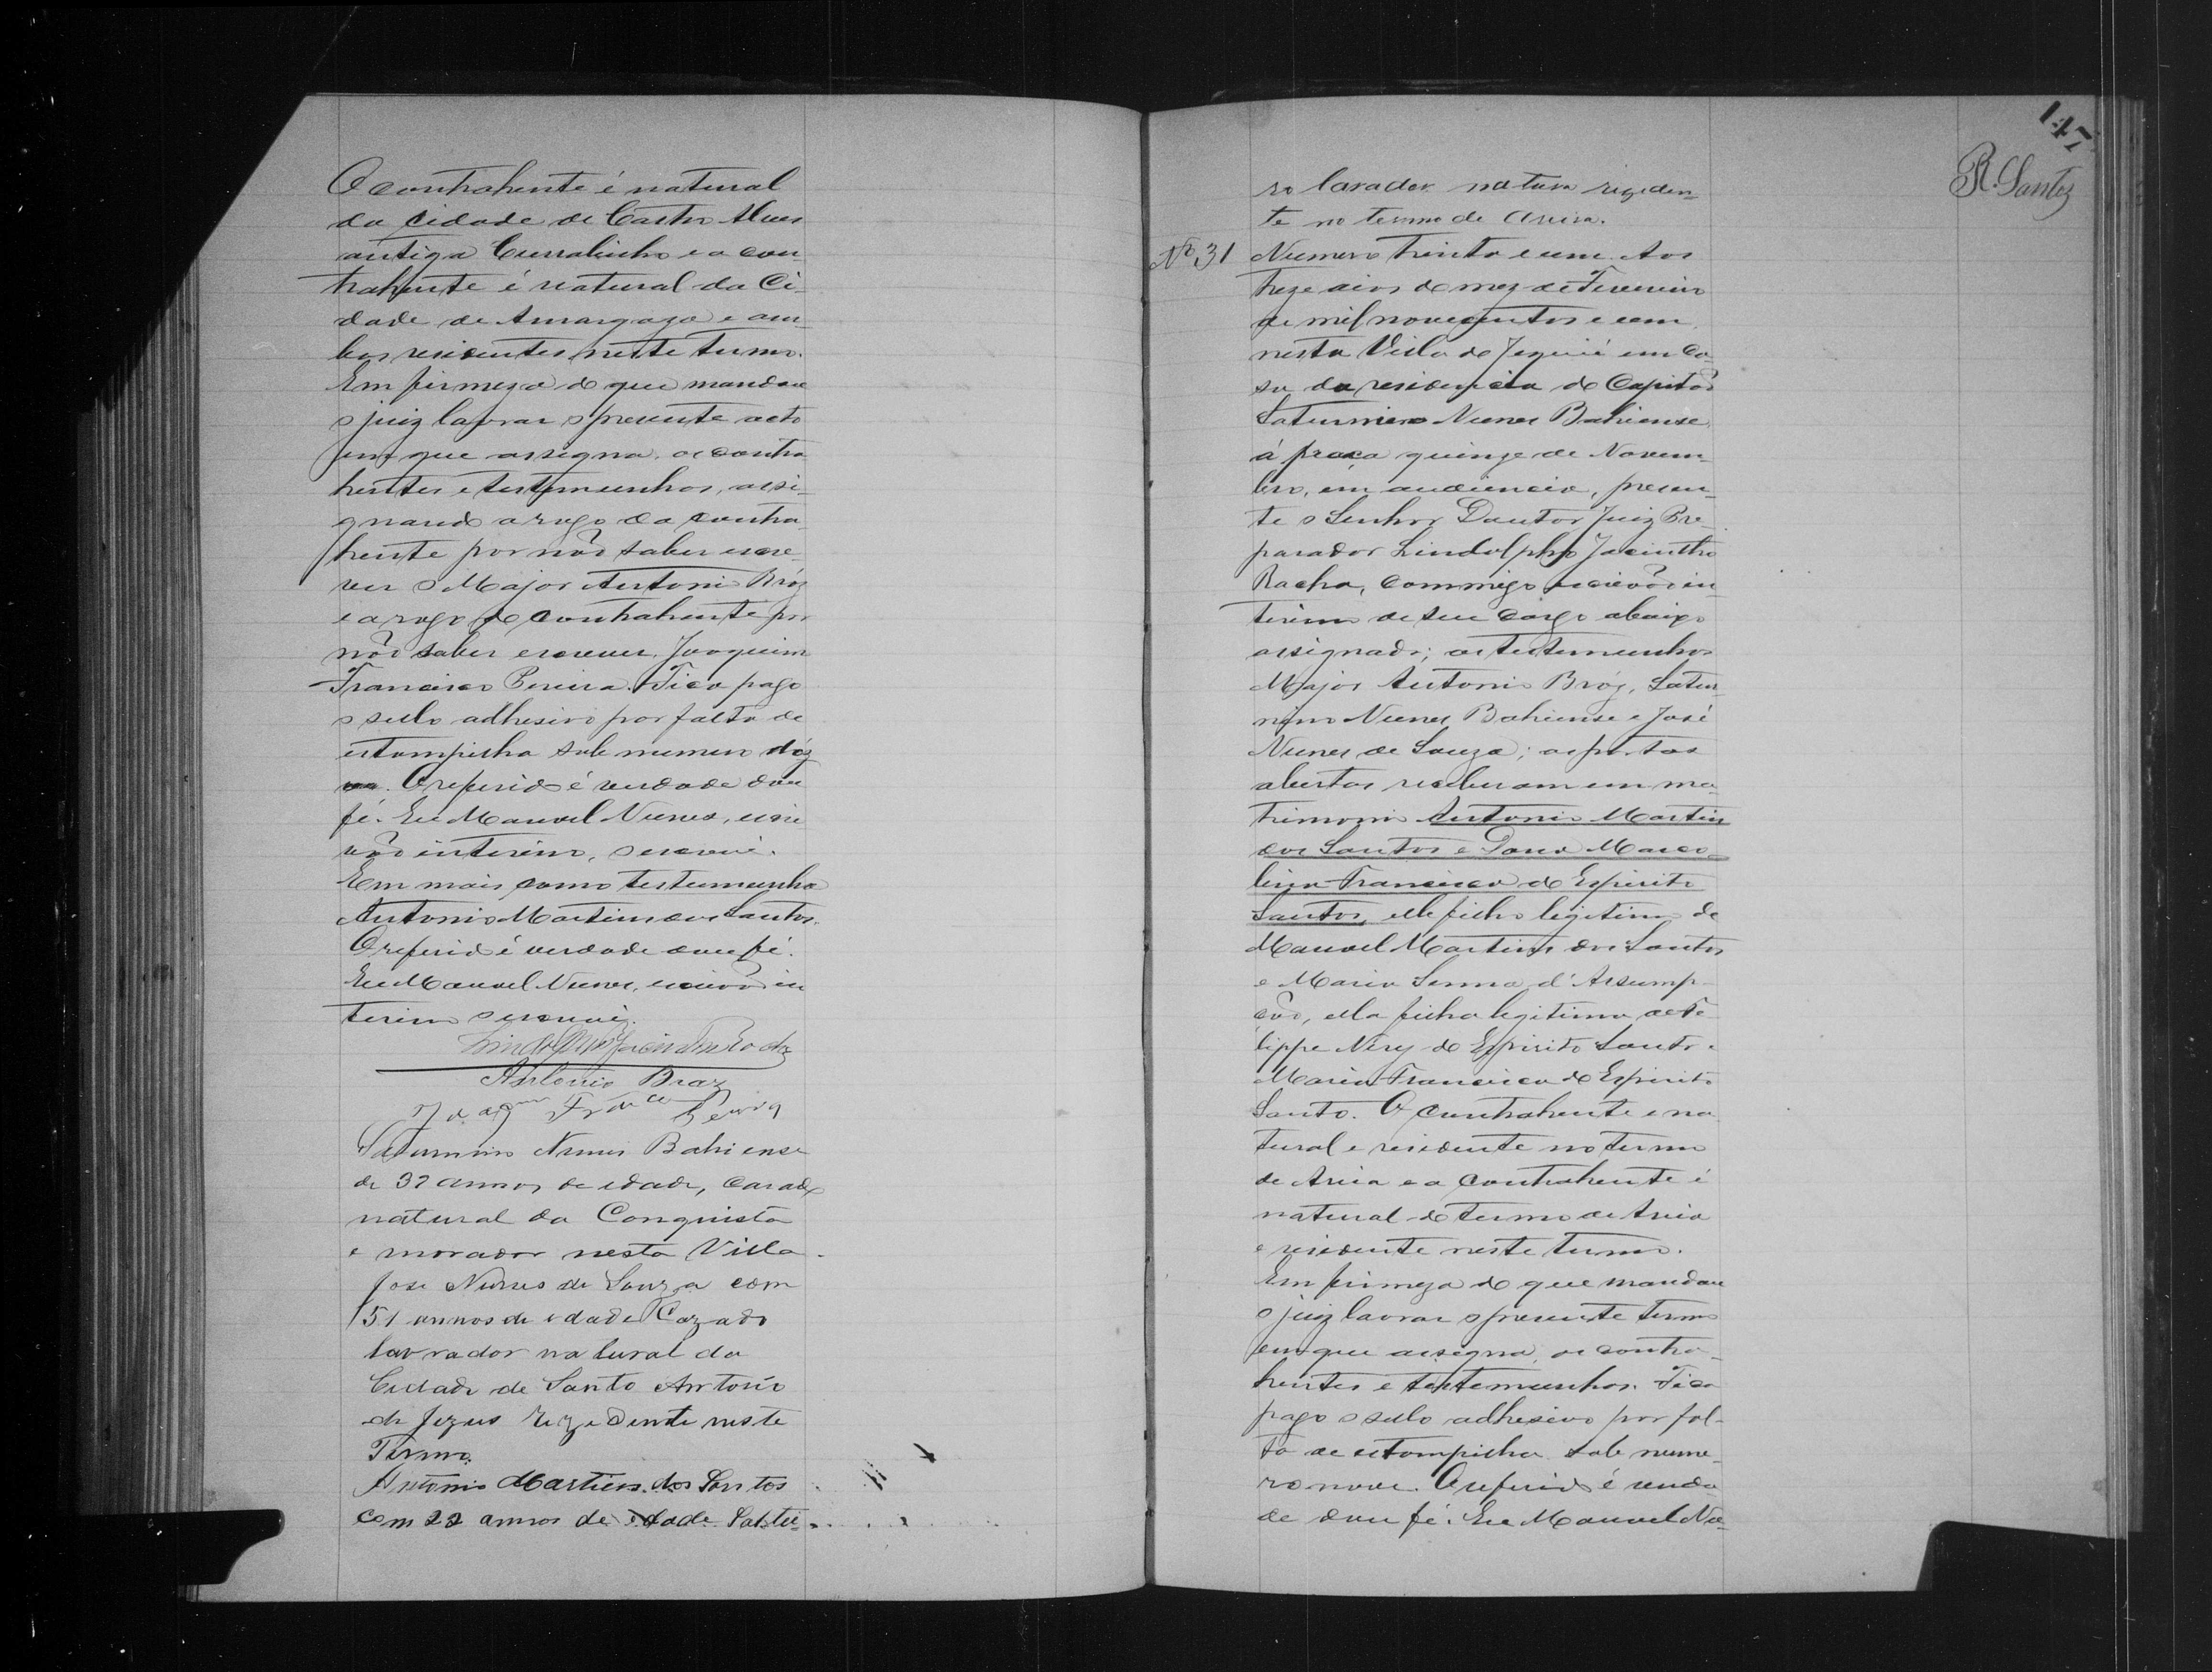 O contrahente é natural
da Cidade de Castro Alves
antiga Curralinho e a con-
trahente é natural da Ci-
dade de Amargoza e am-
bos residentes neste termo.
Em firmeza do que mandou
o juiz lavrar o presente acto
em que assigna, os contra
hentes e testemunhas, assi-
gnando a rogo da contra
hente por não saber escre-
ver o Major Antonio Bráz
e a rogo do contrahente por
não saber escrever, Joaquim
Francisco Pereira. Fica pago
o sello adhesivo por falta de
estampilha sob numero
O referido é verdade dou
fé. Eu Manoel Nunes, escri
vão interino, o escrevi.
Em mais como testemunha
Antonio Martins dos Santos.
O referido é verdade dou fé.
Eu Manoel Nunes, escrivão in
terino o escrevi.
Lindolpho Jacintho Rocha
Antonio Braz
Joaqm Frco Pereira
Saturnino Nunes Bahiense
de 37 annos de idade, casado
natural da Conquista
e morador nesta Villa.
Jose Nunes de Souza com
51 annos de idade Cazado
lavrador natural da
Cidade de Santo Antonio
de Jezus Rezidente neste
Termo.
Antonio Martins dos Santos
com 22 annos de idade Soltei-
147
R. Santos
ro lavrador natura rezeden-
te no termo de Areia.
No 31 Numero trinta e um. Aos
treze dias do mez de Fevereiro
de mil novecentos e um
nesta Villa de Jequié em Ca-
sa da residencia do Capitão
Saturnino Nunes Bahiense
á praça quinze de Novem-
bro, em audiencia, presen-
te o Senhor Doutor Juiz Pre-
parador Lindolpho Jacintho
Rocha, commigo escrivão in
terino de seu cargo abaixo
assignado; as testemunhas
Major Antonio Bráz, Satur
nino Nunes Bahiense e José
Nunes de Souza; as portas
abertas receberam em ma-
trimonio Antonio Martins
dos Santos e Dona Marco-
lina Francisca do Espirito
Santos, elle filho legitimo de
Manoel Martins dos Santos
e Maria Senna d'Assump-
ção, ella filha legitima de Fe-
lippe Nery do Espirito Santo e
Maria Francisca do Espirito
Santo. O contrahente e na
tural e residente no termo
de Areia e a contrahente é
natural do termo de Areia
e residente neste termo.
Em firmeza do que mandou
o juiz lavrar o presente termo
em que assigna, os contra-
hentes e testemunhas. Fica
pago o sello adhesivo por fal-
ta de estampilha sob nume-
ro nove. O referido é verda
de dou fé. Eu Manoel Nu-